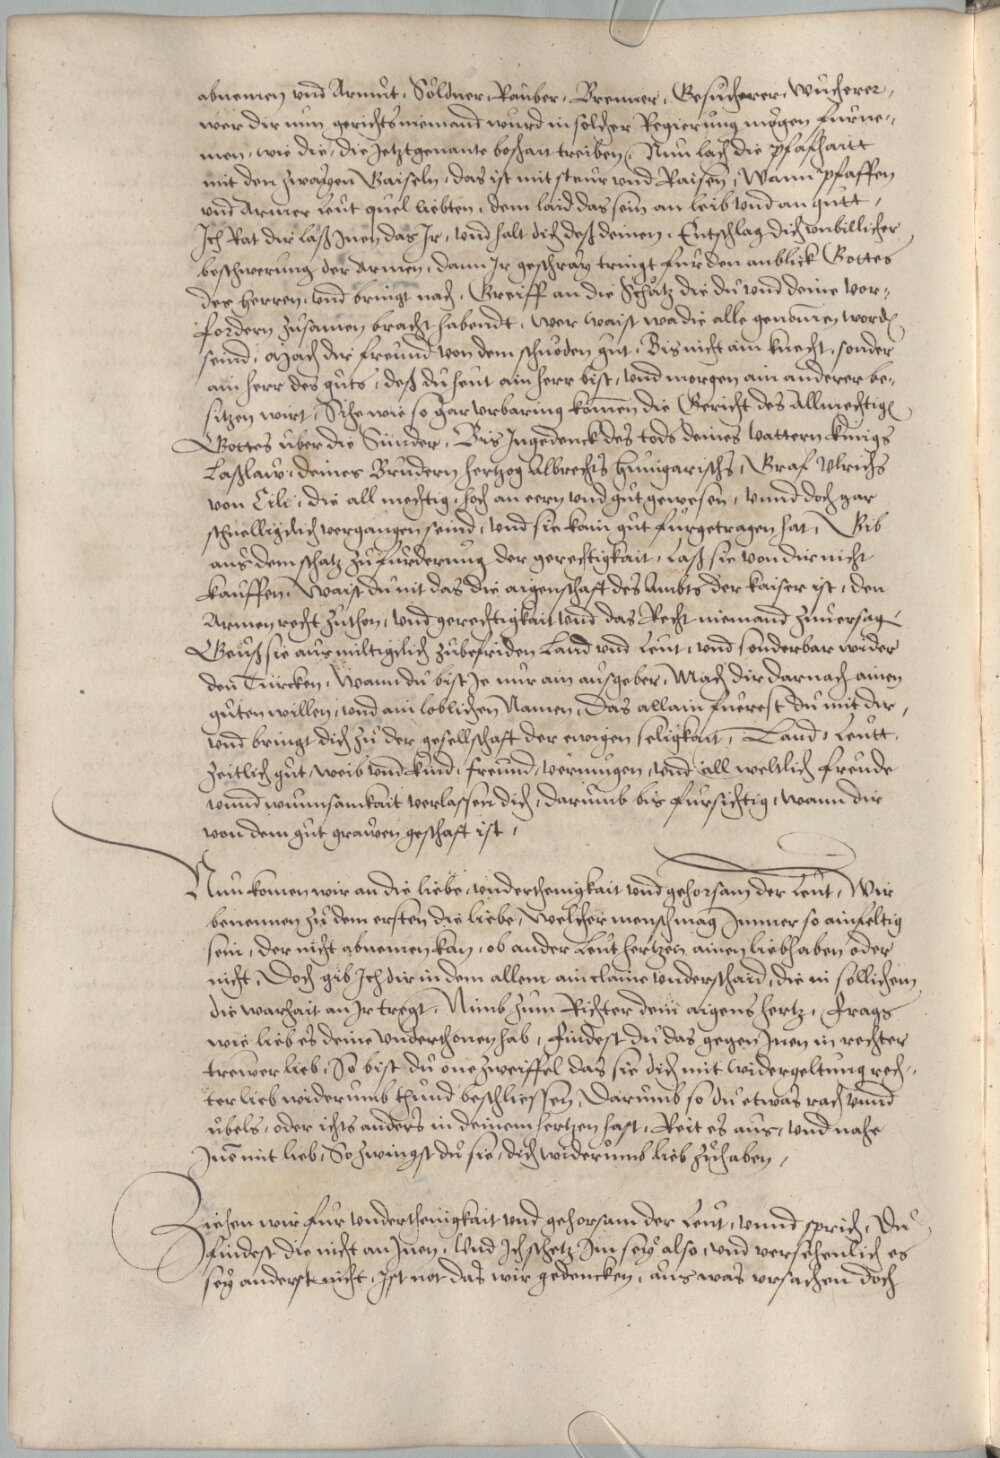 abnemen vnd Armut, Söldner, Rauber, Brenner, Gesuecherer, Wůcherer,
wer dir nun gerichts niemand wurd in solcher Regierung mögen fürne-,
men, wie die, die Jetztgenante boßhait treiben, Nun lach die pfafhaitt
mit den zwayen Gaiseln, das ist mit steur vnd Raisen, Wann pfaffen
vnd Armer leut quel liebten, dem laid das sein an leib vnd an gůtt,
Ich Rat dir laß Inen das Ir, vnd halt dich deß deinen, Entschlag dich vnbillicher
beschwerung der Armen, dann Ir geschray tringt für den anblick Gottes
des herren, vnd bringt rach, Greiff an die Schätz die du vnd deine vor-,
fordern zůsamen bracht habendt, wer waist wa die alle genom̄en word(
seind, Mach dir freund von dem schnöden gůt, Bis nicht ain knecht, sonder
ain herr des gůts, deß du heut ain herr bist, vnd morgen ain anderer be-,
sitzen wirt, Sihe wie so gar vrbaring kom̄en die Gericht des Allmechtig(
Gottes über die Sünder, Bis Ingedenck des tods deines vattern künigs
Laßlaw, deines Brüdern hertzog Albrechts hungarischs, Graf Vlrichs
von Cili, die all mechtig, hoch an eern vnd gůt gewesen, vnnd doch gar
schnelligclich vergangen seind, vnd sie kain gůt fürgetragen hat, Gib
aus dem schatz zů fürderung der gerechtigkait, laß sie von dir nicht
kauffen, Waist du nit das die aigenschaft des Ambts der kaiser ist, den
Armen recht zůthon, vnd gerechtigkait vnd das Recht niemand zuuersag(
Geuß sie aus miltigclich zůbefriden Land vnd Leut, vnd sonderbar wider
den Türcken, Wann du bist Je nur ain ausgeber, Mach dir darnach ainen
gůten willen, vnd ain loblichen Namen, Das allain füerest du mit dir,
vnd bringt dich zů der gesellschaft der ewigen seligkait, Land, Leutt,
zeitlich gůt, weib vnd kind, freund, vermügen, vnd all weltlich freude
vnnd wunnsamkait verlassen dich, darumb bis fürsichtig, wann dir
von dem gůt grawen geschaft ist,
Nun komen wir an die liebe, vnderthenigkait vnd gehorsam der Leut, Wir
benennen zů dem ersten die liebe, Welcher mensch mag Immer so ainfeltig
sein, der nicht abnemen kan, ob ander Leut hertzen ainen liebhaben oder
nicht, Doch gib Ich dir in dem allem ain claine vnderschaid, die in sollichem
die warhait an Ir tregt, Nimb zum Richter dein aigens hertz, Frags
wie lieb es deine vnderthonen hab, Findest du das gegen Inen in rechter
trewer lieb, So bist du one zweiffel das sie dich mit widergeltung rech-,
ter lieb widerumb thund beschliessen, Darumb so du etwas rach vnnd
übels, oder ichts anders in deinem hertzen hast, Reit es aus, vnd nahe
Inē mit lieb, So zwingst du sie, dich widerumb lieb zůhaben,
Ziehen wir für vnderthenigkait vnd gehorsam der Leut, vnnd sprich, Du
findest die nicht an Inen, Vnd Ich schetz Im sey also, vnd versehenlich es
sey anderst nicht, Ist not das wir gedencken, aus was vrsachen doch